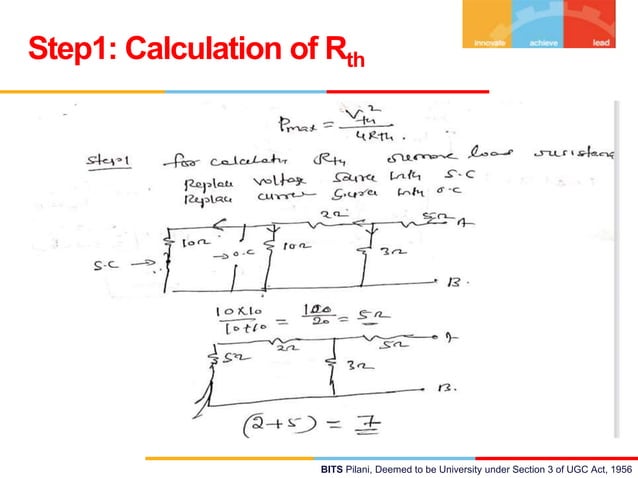 Step1: Calculation of Rth
innovate achieve lead
Pmax = Vth² / 4Rth .
Step1 for calculatn Rth remove load resistanc
Replace voltage source with S.C
Replace current source with o.c
2Ω 5Ω A
10Ω 10Ω 3Ω
S.C → → o.c
B.
10×10 / 10+10 = 100 / 20 = 5Ω
2Ω 5Ω A
5Ω 3Ω
B.
(2+5) = 7
BITS Pilani, Deemed to be University under Section 3 of UGC Act, 1956